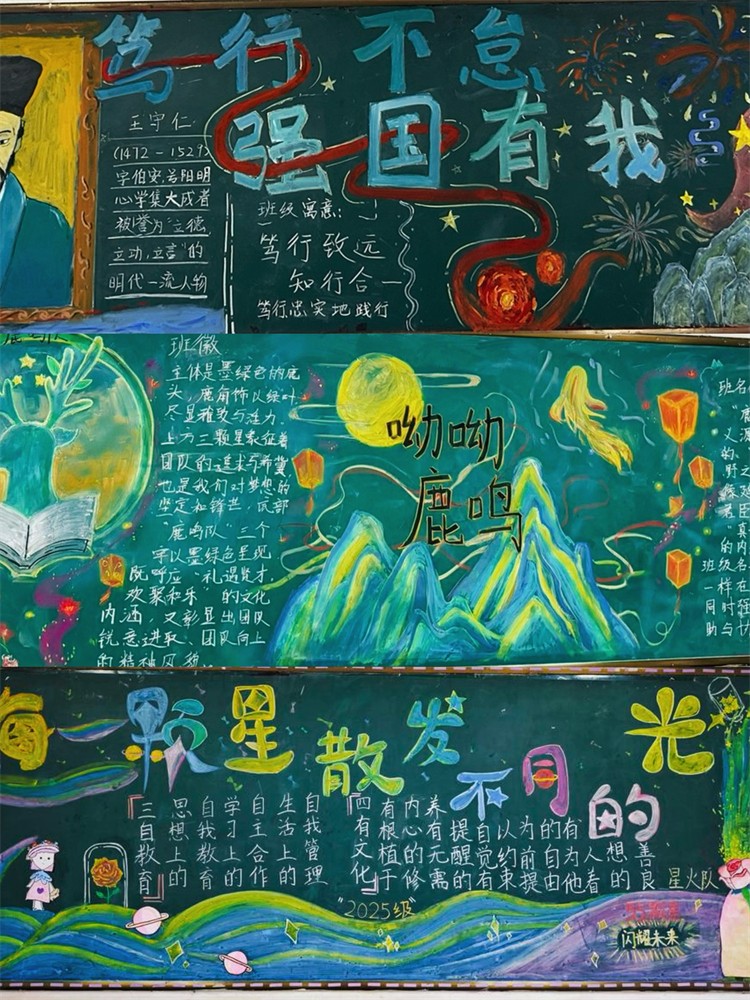 笃行不怠
强国有我
王守仁
(1472-1529)
字伯安,号阳明
心学集大成者
被誉为"立德
立功,立言"的
明代一流人物
班级寓意:
笃行致远
知行合一
笃行忠实地践行
班徽
主体是墨绿色的鹿
头,鹿角饰以绿叶
尽显雅致与活力
上方三颗星象征着
团队的追求与希冀
也是我们对梦想的
坚定和锋芒,底部
"鹿鸣队"三个
字以墨绿色呈现
既呼应"礼遇贤才,
欢聚和乐"的文化
内涵,又彰显出团队
锐意进取、团队向上
的精神风貌.
呦呦
鹿鸣
班名
每一颗星散发不同的光
『三自教育』
思想上的
自我教育
学习上的
自主合作
生活上的
自我管理
『四有文化』
有根植于
内心的修
养有无需
提醒的
自觉有
认约束
为前提
的自由
有为他
人着
想的
善良
星火队
"2025级"
闪耀未来